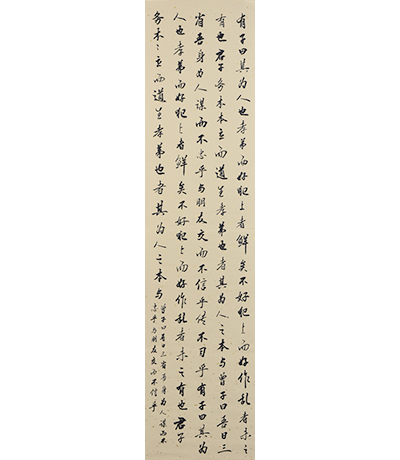 有子曰其为人也孝弟而好犯上者鮮矣不好犯上而好作乱者未之
有也君子务本本立而道生孝弟也者其为人之本与曾子曰吾日三
省吾身为人谋而不忠乎与朋友交而不信乎传不习乎有子曰其为
人也孝弟而好犯上者鮮矣不好犯上而好作乱者未之有也君子
务本〻立而道生孝弟也者其为人之本与
曾子曰吾日三省吾身为人谋而不
忠乎与朋友交而不信乎